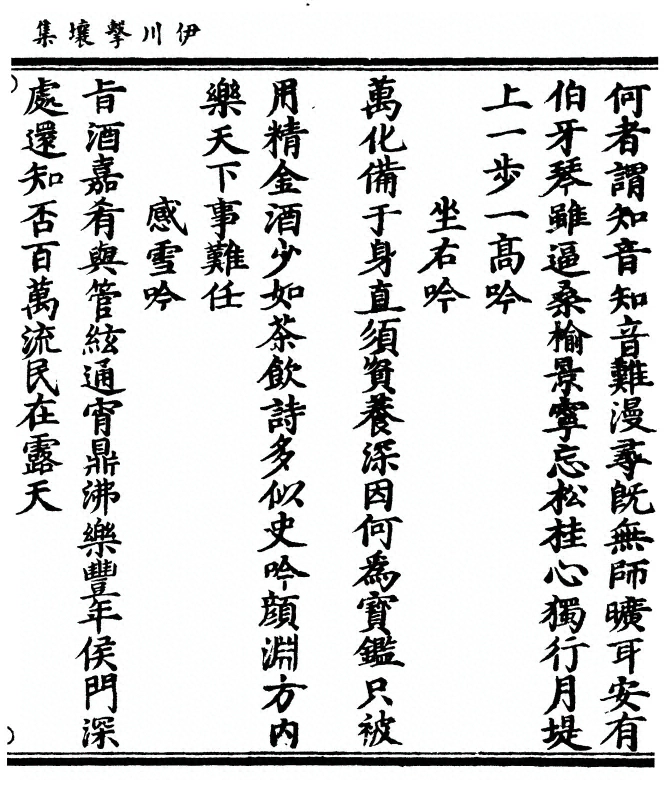 伊川擊壤集
何者謂知音知音難漫尋既無師曠耳安有
伯牙琴雖逼桑榆景寧忘松桂心獨行月堤
上一步一高吟
坐右吟
萬化備于身直須資養深因何為寶鑑只被
用精金酒少如茶飲詩多似史吟顏淵方內
樂天下事難任
感雪吟
旨酒嘉肴與管絃通宵鼎沸樂豐年侯門深
處還知否百萬流民在露天